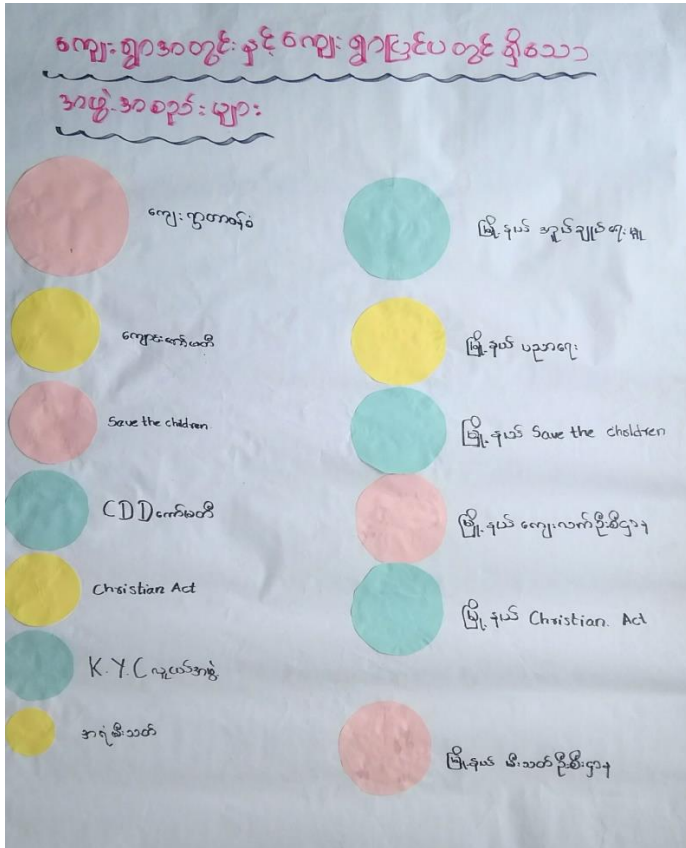 ကျေးရွာအတွင်းနှင့်ကျေးရွာပြင်ပတွင် ရှိသော
အဖွဲ့အစည်းများ
ကျေးရွာတာဝန်ခံ
ကျောင်းကော်မတီ
Save the children
CDD ကော်မတီ
Christian Act
K.Y.C လူငယ်အဖွဲ့
အရံမီးသတ်
မြို့နယ် အုပ်ချုပ်ရေးမှူး
မြို့နယ် ပညာရေး
မြို့နယ် Save the children
မြို့နယ် ကျေးလက်ဦးစီးဌာန
မြို့နယ် Christian. Act
မြို့နယ် မီးသတ်ဦးစီးဌာန